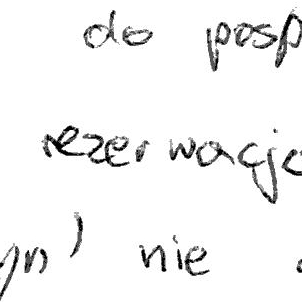 do posp
rezerwacje
yn' nie